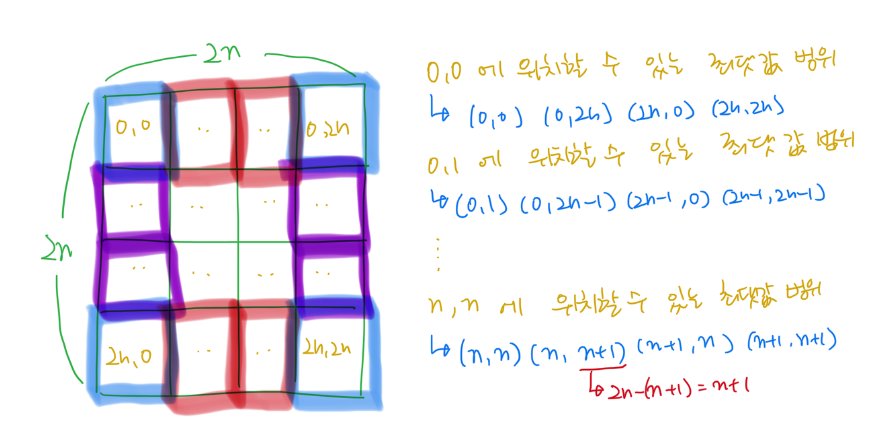 2n
2n
0,0 .. .. 0,2n
.. .. .. ..
.. .. .. ..
2n,0 .. .. 2n,2n
0,0 에 위치할 수 있는 최댓값 범위
↳ (0,0) (0,2n) (2n,0) (2n,2n)
0,1 에 위치할 수 있는 최댓값 범위
↳ (0,1) (0,2n-1) (2n-1,0) (2n-1,2n-1)
⋮
n,n 에 위치할 수 있는 최댓값 범위
↳ (n,n) (n, n+1) (n+1,n) (n+1,n+1)
↳ 2n-(n+1) = n+1